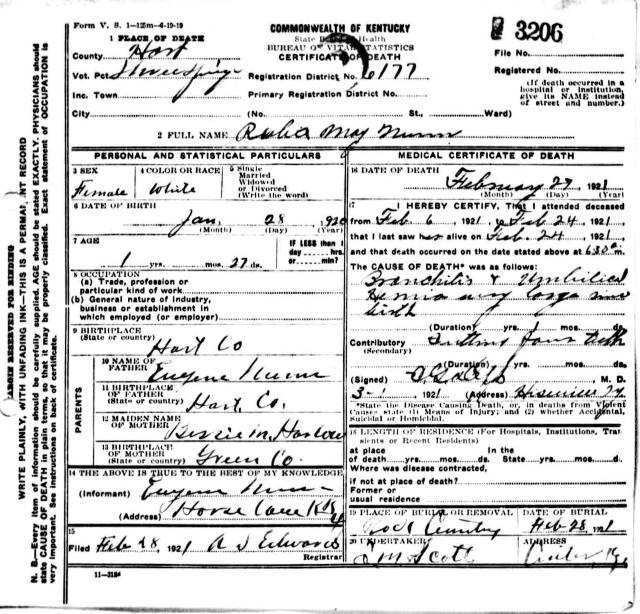 Form V. S. 1—125m—4-19-19
COMMONWEALTH OF KENTUCKY
State Health
BUREAU OF VITAL STATISTICS
CERTIFICATE OF DEATH
3206
1 PLACE OF DEATH
County Hart
Vot. Pct.
Inc. Town
City
Registration District No. 6177
Primary Registration District No.
(No. St., Ward)
File No.
Registered No.
(If death occurred in a
hospital or institution,
give its NAME instead
of street and number.)
2 FULL NAME May Nunn
PERSONAL AND STATISTICAL PARTICULARS
3 SEX
Female
4 COLOR OR RACE
White
5 Single
Married
Widowed
or Divorced
(Write the word)
6 DATE OF BIRTH
Jan, 28 1920
(Month) (Day) (Year)
7 AGE
1 yrs. mos. 27 ds.
IF LESS than 1
day hrs.
or min.?
8 OCCUPATION
(a) Trade, profession or
particular kind of work
(b) General nature of industry,
business or establishment in
which employed (or employer)
9 BIRTHPLACE
(State or country)
Hart Co
PARENTS
10 NAME OF
FATHER
Eugene Nunn
11 BIRTHPLACE
OF FATHER
(State or country)
Hart Co.
12 MAIDEN NAME
OF MOTHER
Bessie M. Harlow
13 BIRTHPLACE
OF MOTHER
(State or country)
Green Co.
14 THE ABOVE IS TRUE TO THE BEST OF MY KNOWLEDGE
(Informant) Eugene Nunn
(Address) Horse Cave Ky
15
Filed Feb 28, 1921 A J Edwards
Registrar
11—3184
MEDICAL CERTIFICATE OF DEATH
16 DATE OF DEATH
February 27, 1921
(Month) (Day) (Year)
17 I HEREBY CERTIFY, That I attended deceased
from Feb 6, 1921, to Feb 24, 1921
that I last saw her alive on Feb 24, 1921
and that death occurred on the date stated above at 6:30 m.
The CAUSE OF DEATH* was as follows:
Bronchitis & Umbilical
Hernia very large since
birth
(Duration) yrs. mos. ds.
Contributory Cutting four teeth
(Secondary)
(Duration) yrs. mos. ds.
(Signed) M. D.
3-1 1921 (Address) Hiseville Ky.
*State the Disease Causing Death, or, in deaths from Violent
Causes state (1) Means of Injury; and (2) whether Accidental,
Suicidal or Homicidal.
18 LENGTH OF RESIDENCE (For Hospitals, Institutions, Tran-
sients or Recent Residents)
At place In the
of death yrs. mos. ds. State yrs. mos. ds.
Where was disease contracted,
if not at place of death?
Former or
usual residence
19 PLACE OF BURIAL OR REMOVAL
Cemetery
DATE OF BURIAL
Feb 28, 1921
20 UNDERTAKER
Scott
ADDRESS
Center, Ky.
MARGIN RESERVED FOR BINDING
WRITE PLAINLY, WITH UNFADING INK—THIS IS A PERMANENT RECORD
N. B.—Every item of information should be carefully supplied. AGE should be stated EXACTLY. PHYSICIANS should
state CAUSE OF DEATH in plain terms, so that it may be properly classified. Exact statement of OCCUPATION is
very important. See instructions on back of certificate.